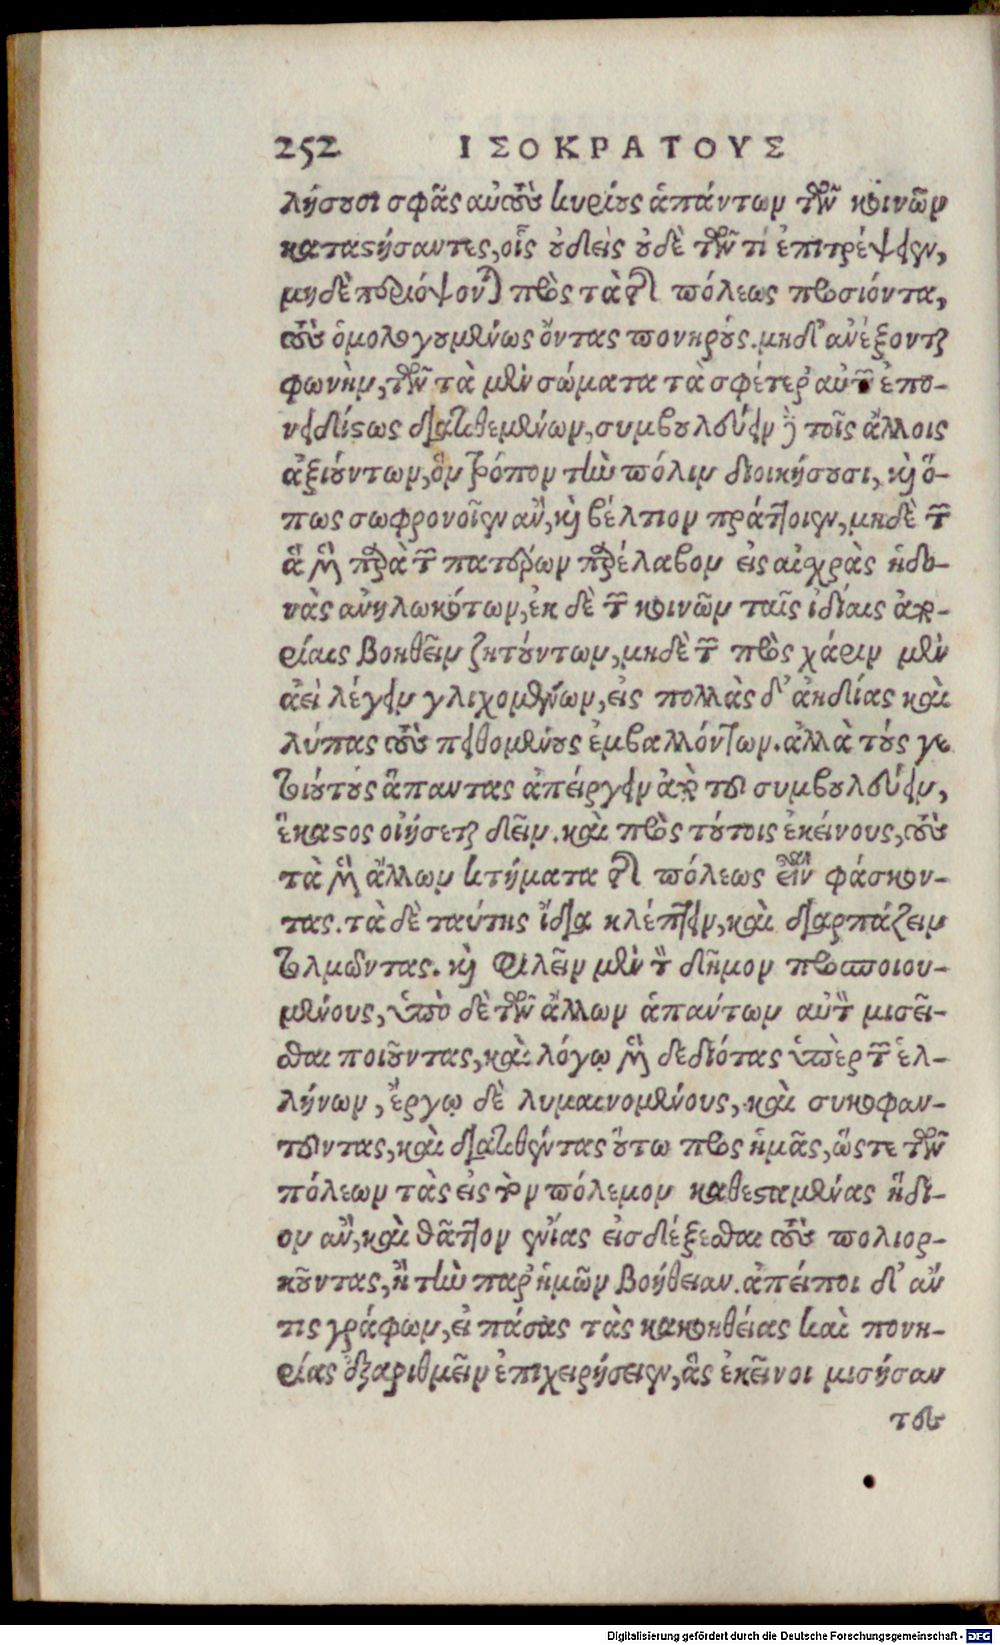 252 ΙΣΟΚΡΑΤΟΥΣ
λήσουσι σφᾶς αὐτοὺς κυρίους ἁπάντων τῶν κοινῶν
καταστήσαντες, οἷς οὐδεὶς οὐδὲ τῶν τί ἐπιτρέψειεν,
μηδὲ περιόψονται πρὸς τὰ τῆς πόλεως προσιόντα,
τοὺς ὁμολογουμένως ὄντας πονηρούς. μηδ' ἀνέξονται
φωνὴν, τῶν τὰ μὲν σώματα τὰ σφέτερ' αὐτῶν ἐπο-
νειδίστως διατεθεμένων, συμβουλεύειν δὲ τοῖς ἄλλοις
ἀξιούντων, ὃν τρόπον τὴν πόλιν διοικήσουσι, καὶ ὅ-
πως σωφρονοῖεν ἂν, καὶ βέλτιον πράττοιεν, μηδὲ τῶν
ἃ μὲν παρὰ τῶν πατέρων παρέλαβον εἰς αἰσχρὰς ἡδο-
νὰς ἀνηλωκότων, ἐκ δὲ τῶν κοινῶν ταῖς ἰδίαις ἀπο-
ρίαις βοηθεῖν ζητούντων, μηδὲ τῶν πρὸς χάριν μὲν
ἀεὶ λέγειν γλιχομένων, εἰς πολλὰς δ' ἀηδίας καὶ
λύπας τοὺς πειθομένους ἐμβαλλόντων. ἀλλὰ τούς γε
τοιούτους ἅπαντας ἀπείργειν ἀπὸ τοῦ συμβουλεύειν,
ἕκαστος οἰήσεται δεῖν. καὶ πρὸς τούτοις ἐκείνους, τοὺς
τὰ μὲν ἄλλων κτήματα τῆς πόλεως εἶναι φάσκον-
τας. τὰ δὲ ταύτης ἴδια κλέπτειν, καὶ διαρπάζειν
τολμῶντας. καὶ φιλεῖν μὲν τὸν δῆμον προσποιου-
μένους, ὑπὸ δὲ τῶν ἄλλων ἁπάντων αὐτὸν μισεῖ-
σθαι ποιοῦντας, καὶ λόγῳ μὲν δεδιότας ὑπὲρ τῶν ἑλ-
λήνων, ἔργῳ δὲ λυμαινομένους, καὶ συκοφαν-
τοῦντας, καὶ διατιθέντας οὕτω πρὸς ἡμᾶς, ὥστε τῶν
πόλεων τὰς εἰς τὸν πόλεμον καθεσταμένας ἥδι-
ον ἂν, καὶ θᾶττον ἐνίας εἰσδέξεσθαι τοὺς πολιορ-
κοῦντας, ἢ τὴν παρ' ἡμῶν βοήθειαν. ἀπείποι δ' ἄν
τις γράφων, εἰ πάσας τὰς κακοηθείας καὶ πονη-
ρίας ἐξαριθμεῖν ἐπιχειρήσειεν, ἃς ἐκεῖνοι μισήσαν
τες
Digitalisierung gefördert durch die Deutsche Forschungsgemeinschaft - DFG